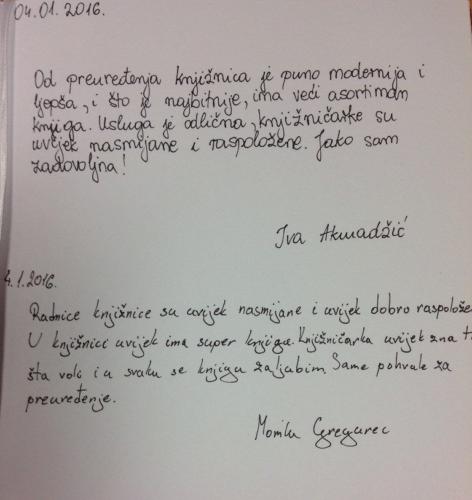 04.01.2016.
Od preuređenja knjižnica je puno modernija i
ljepša, i što je najbitnije, ima veći asortiman
knjiga. Usluga je odlična, knjižničarke su
uvijek nasmijane i raspoložene. Jako sam
zadovoljna!
Iva Akmadžić
4.1.2016.
Radnice knjižnice su uvijek nasmijane i uvijek dobro raspolože
U knjižnici uvijek ima super knjiga. Knjižničarka uvijek zna t
šta voli i u svaku se knjigu zaljubim. Same pohvale za
preuređenje.
Monika Gregurec